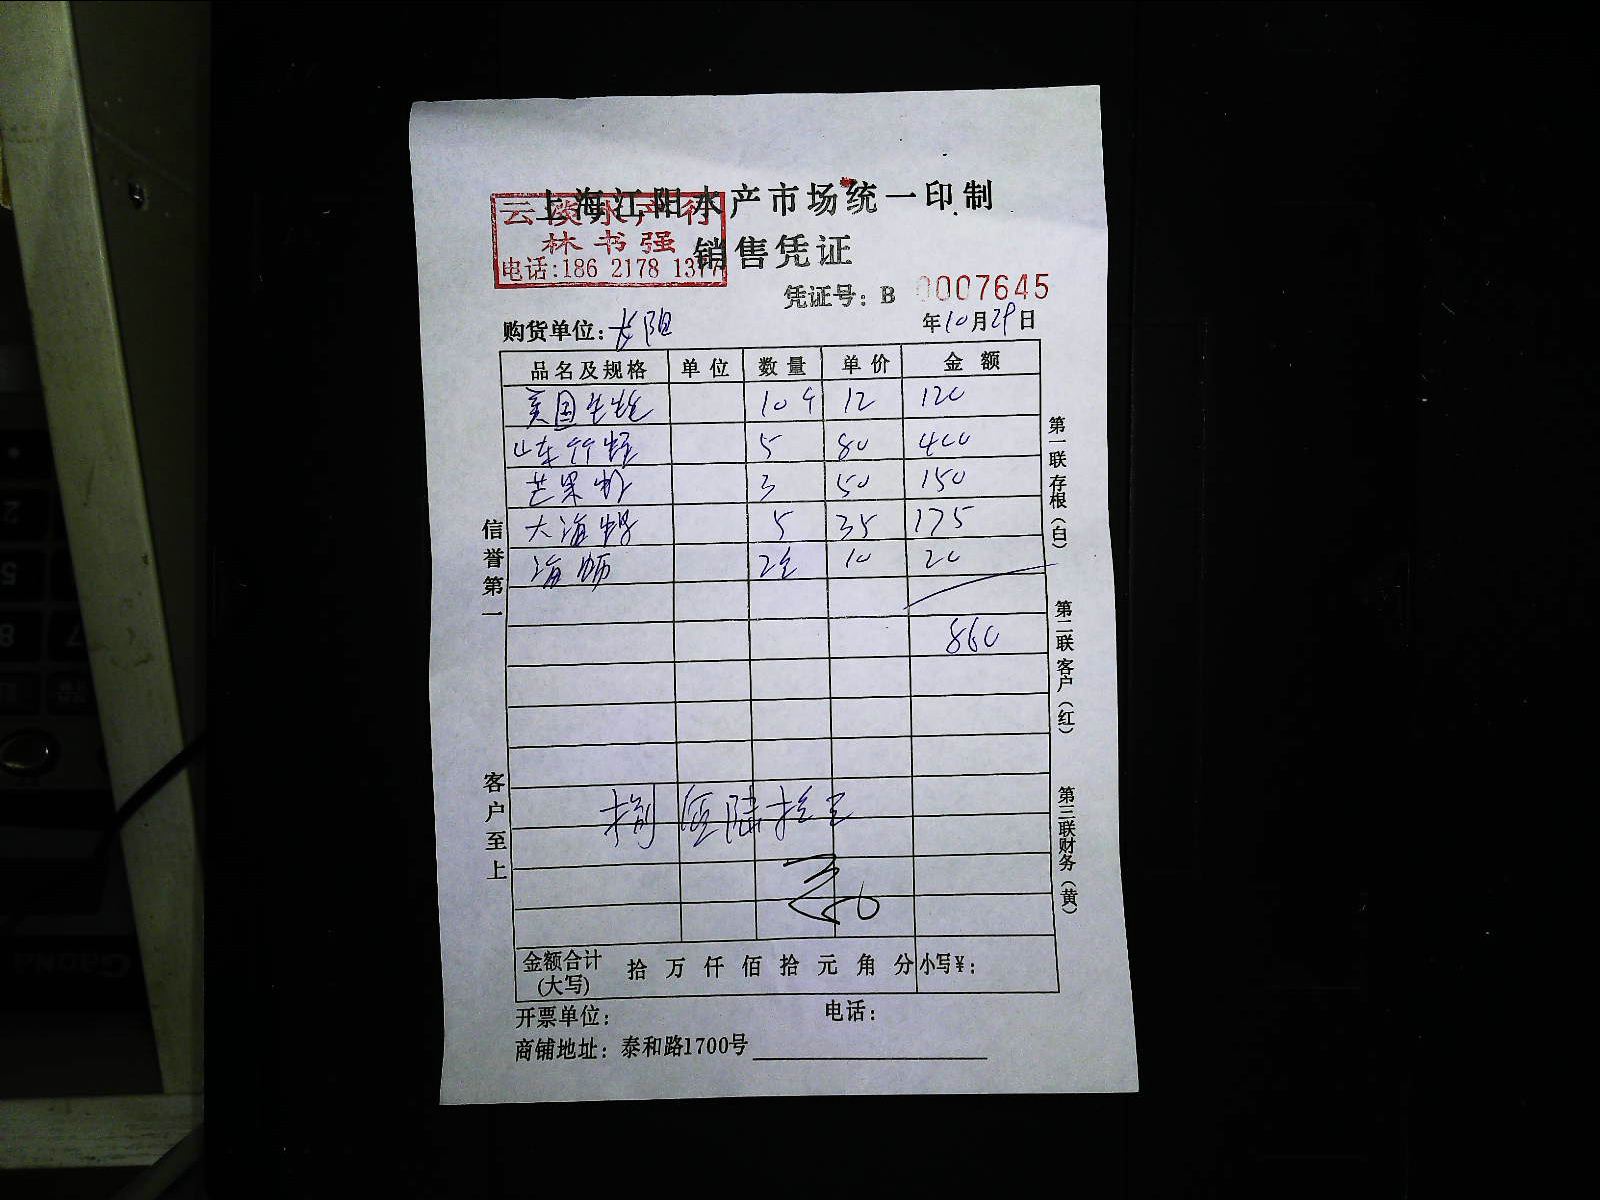 上海江阳水产市场统一印制
云 水产行
林书强
电话:186 2178 1377
销售凭证
凭证号: B 0007645
购货单位: 长阳
年10月29日
品名及规格 单位 数量 单价 金额
美国生蚝 10个 12 120
山东竹蛏 5 80 400
芒果 3 50 150
大海 5 35 175
海蛎 2 10 20
860
捌佰陆拾元
金额合计(大写) 拾 万 仟 佰 拾 元 角 分 小写¥:
开票单位: 电话:
商铺地址: 泰和路1700号
信誉第一
客户至上
第一联 存根(白)
第二联 客户(红)
第三联 财务(黄)